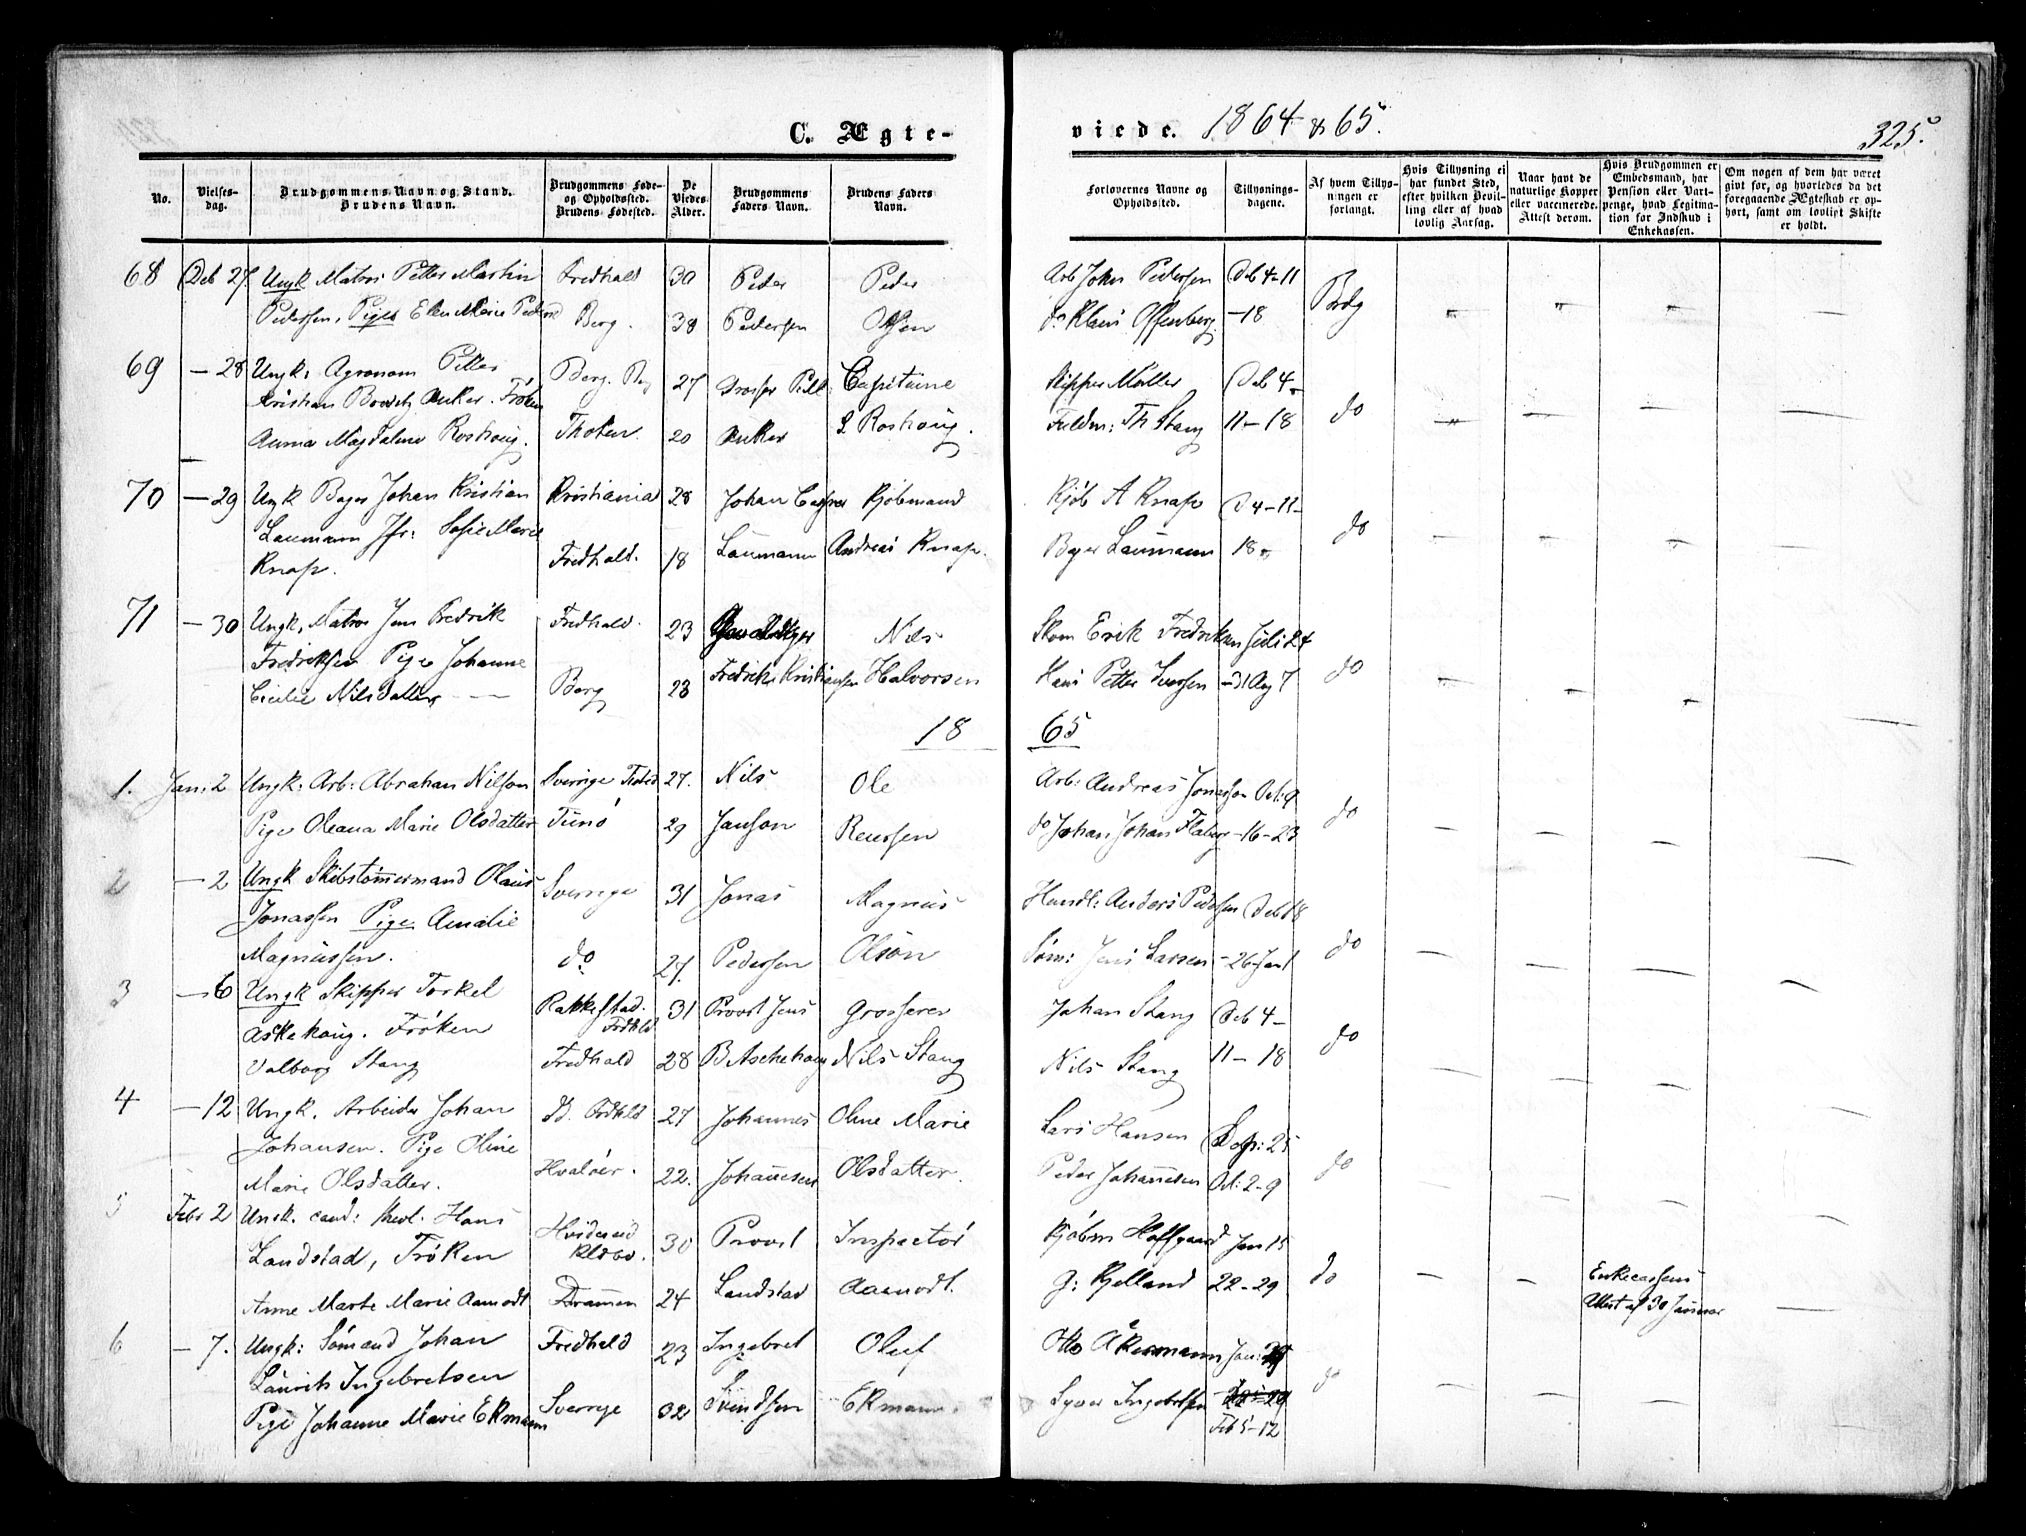 C. Ægte-
viede. 1864 & 65.
325.
No.
Vielses-
dag.
Brudgommens Navn og Stand.
Brudens Navn.
Brudgommens Føde-
og Opholdssted.
Brudens Fødested.
De
Viedes
Alder.
Brudgommens
Faders Navn.
Brudens Faders
Navn.
Forlovernes Navne og
Opholdssted.
Tillysnings-
dagene.
Af hvem Tillys-
ningen er
forlangt.
Hvis Tillysning ei
har fundet Sted,
efter hvilken Bevil-
ling eller af hvad
lovlig Aarsag.
Naar havt de
naturlige Kopper
eller vaccinerede.
Attest derom.
Hvis Brudgommen er
Embedsmand, har
Pension eller Vart-
penge, hvad Legitima-
tion for Indskud i
Enkekassen.
Om nogen af dem har været
givt for, og hvorledes da det
foregaaende Ægteskab er op-
hørt, samt om lovligt Skifte
er holdt.
68 Deb 27 Ungk Matros Petter Martin Fredhald 30 Peder Peder Arb John Pedersen Deb 4-11 Brdg
Pedersen, Pige Elen Marie Peders Berg. 38 Pedersen Olsen do Klaus Offenberg -18
69 - 28 Ungk: Agronom Petter Berg. 27 Grosser Capitaine Skipper Møller Deb 4-
Kristian Anker. Frøken do
Anna Magdalene Roshaug. Thoten. 20 Anker L Roshaug. Fuldm: Th Stang 11-18
70 - 29 Ungk Bager Johan Kristian Kristiania 28 Johan Casper Kjøbmand Kjøb A Knap D 4-11- do
Laumann Jfr: Sofie Marie Fredhald. 18 Laumann Andreas Knap. Bager Laumann 18-
Knap.
71 - 30 Ungk, Matros Jens Fredrik Fredhald. 23 Nils Skom Erik Fredriksen Juli 24
Fredriksen Pige Johanne Fredrik Kristiansen Halvorsen Hans Petter Iversen -31 Aug 7 do
Cecilie Nilsdatter Berg 23
18 65
1. Jan: 2 Ungk: Arb: Abrahan Nilsson Sverrige Tisted 27. Nils Ole Arb: Andreas Jonasson Oct: 9 do
Pige Oleana Marie Olsdatter Tunø 29 Janson Reiersen do Johan Johan Flaberg -16-23
2 - 2 Ungk Skibstømmermand Olaus Sverrige 31 Jonas Magnus Handl: Anders Pedersen Deb 18
Jonassen Pige Amalie do
Magnussen. do 27. Pedersen Olson Søm: Jens Larsen -26-Jan 1
3 - 6 Ungk Skipper Torkel Rakkestad. Frdhld 31 Provst Jens Grosserer Johan Stang Deb 4-
Askehaug. Frøken do
Valborg Stang Fredhald 28 B Aschehoug Nils Stang Nils Stang 11-18
4 - 12 Ungk. Arbeider Johan Id. Frdhld 27 Johannes Oline Marie Lars Hansen Sept: 25
Johansen. Pige Oline do
Marie Olsdatter. Hvaløer. 22. Johannesen Olsdatter. Peder Johannesen Oct: 2-9
5 Febr 2 Ungk. cand: theol: Hans Hvideseid 30 Provst Inspectør Kjøbm Hoffgaard Jan 15
Landstad, Frøken do
Anne Marte Marie Aamodt Drammen 24 Landstad Aamodt. G: Kjelland 22-29 Enkecassens
Attest af 30 Januar
6 - 7. Ungk: Sømand Johan Fredhald 23 Ingebret Oluf Otto Åkermann Jan:
Laurits Ingebretsen do
Pige Johanne Marie Ekmann Sverrige 32 Svendsen Ekmann Syver Ingebretsen
Feb 5-12